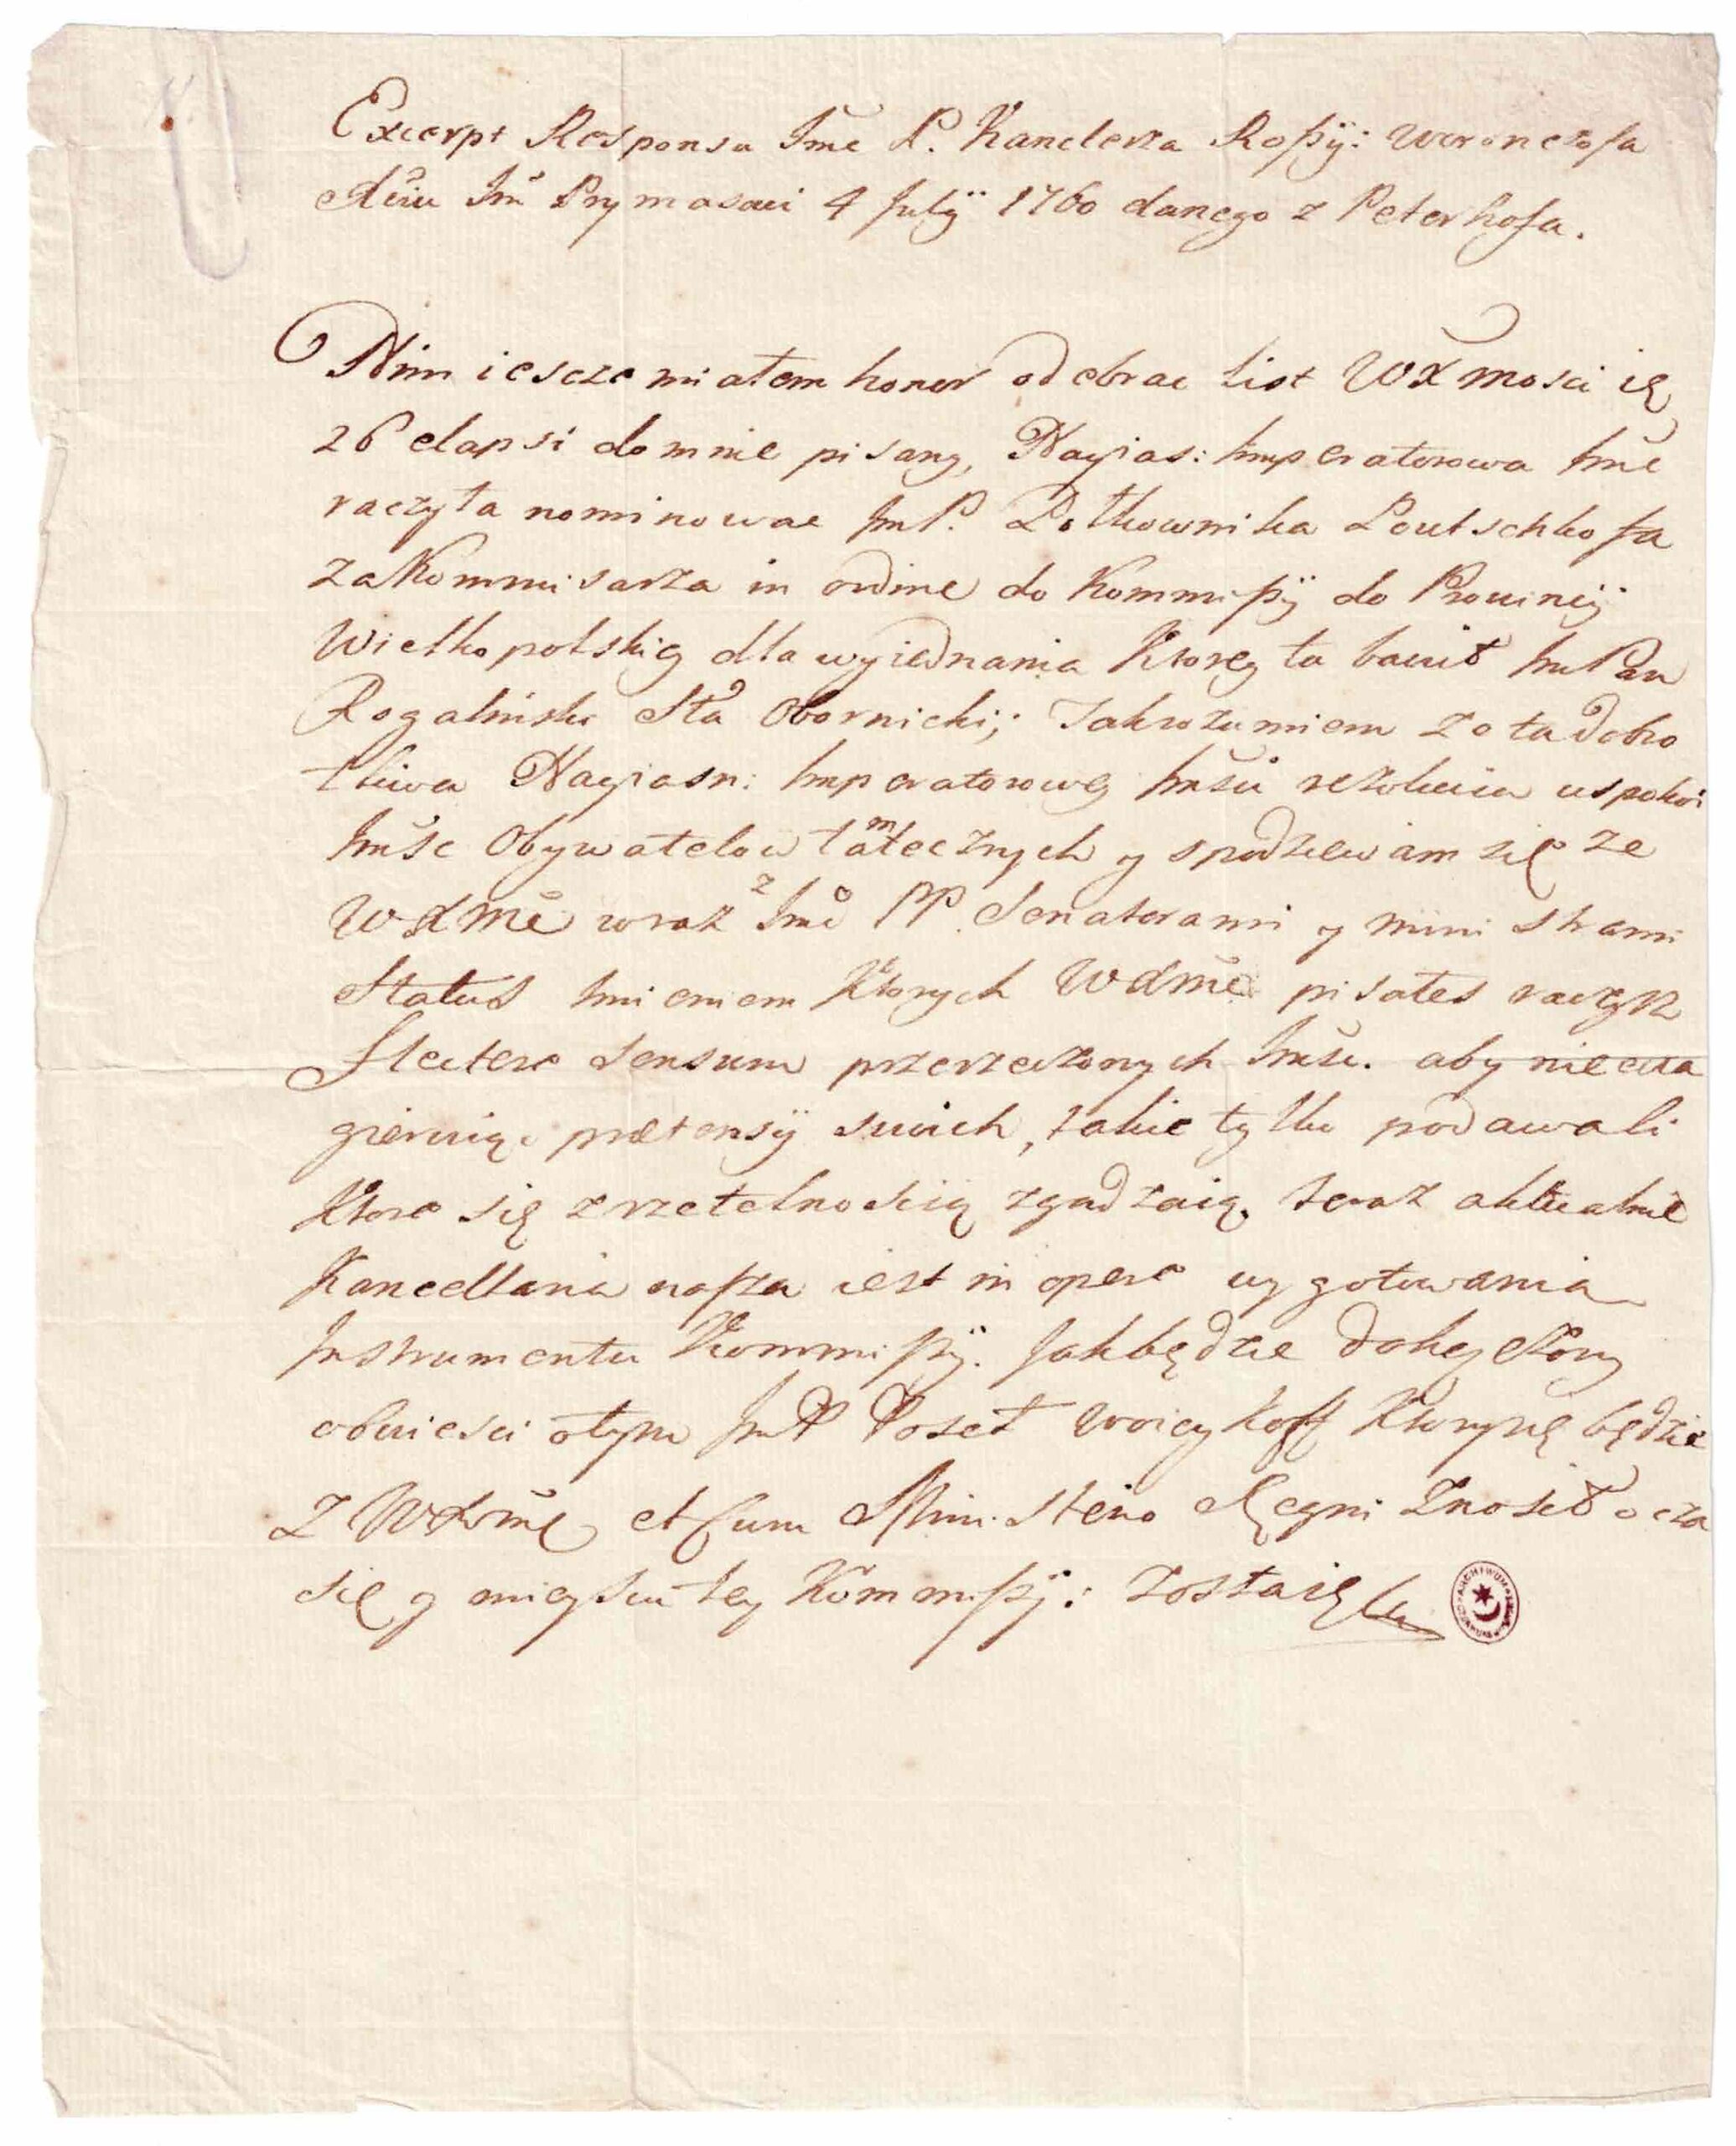 Excerpt Responsu Jmć P. Kanclerza Roßÿ: Woronczofa
Xciu Jm̃ Prymasowi 4 Julÿ 1760 danego z Peterhofa.
Nim iescze miałem honor odebrac List WXmosci ię
26 elapsi do mnie pisany, Nayias: Imperatorowa Jmć
raczyła nominowac JmP. Połkownika Poutschkofa
za Kommisarza in ordine do Kommißÿ do Prowincÿ
Wielkopolskiey dla wyiednania Ktorey tu bawił JmPan
Rogalinski Sta Obornicki; Jakrozumiem ze ta dobro
tliwa Nayiasn: Imperatorowey Jmści rezolucia uspokoi
Jmśc Obywatelow tamtecznych y spodziewam się ze
WXMć wraz z Jmć PP. Senatorami y ministrami
Status Imieniem Ktorych WXmć pisałes raczysz
flectere sensum przerzeczonych Jmśc. aby nie exa
gieruiąc prætensÿ swoich, takie tylko podawali
Ktore się z rzetelnością zgadzaią. teraz aktualnie
Kancellaria naßza iest in opere wygotowania
Instrumentu Kommißÿ. Jakbędzie dokończony
obwiesci otym JmP Poseł Woieykoff Ktorysię będzie
z WXmć et cum Ministerio Regni Znosił o cza
sie y mieyscu tey Kommißÿ: zostaię
ARCHIWUM